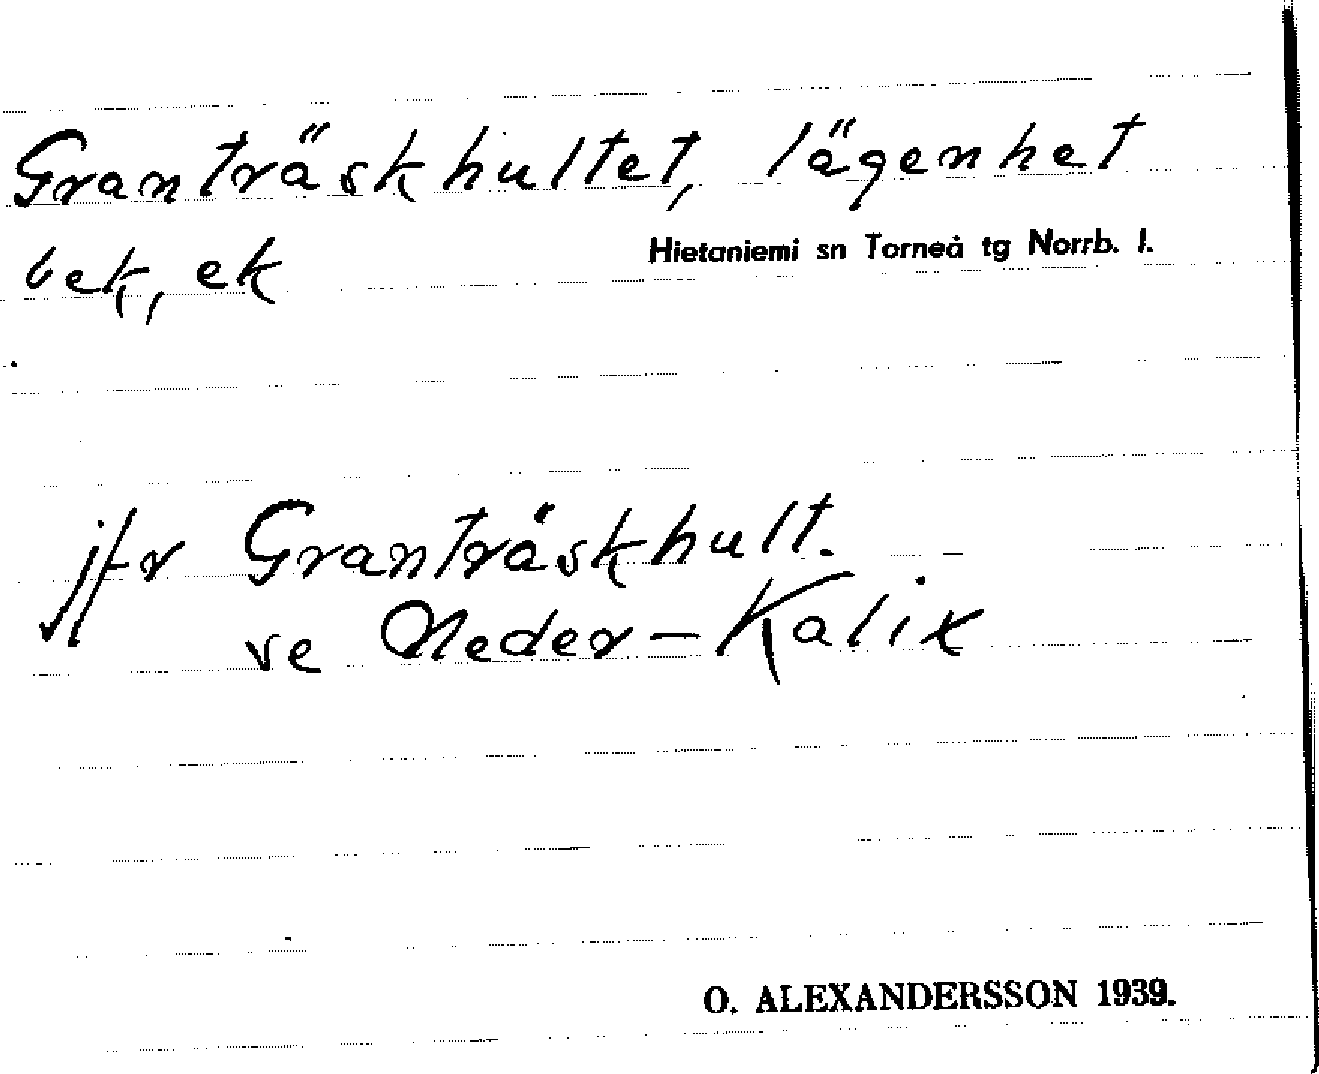 Granträskhultet, lägenhet
bek, ek
Hietaniemi sn Torneå tg Norrb. l.
jfr Granträskhult.
se Neder-Kalix
O. ALEXANDERSSON 1939.